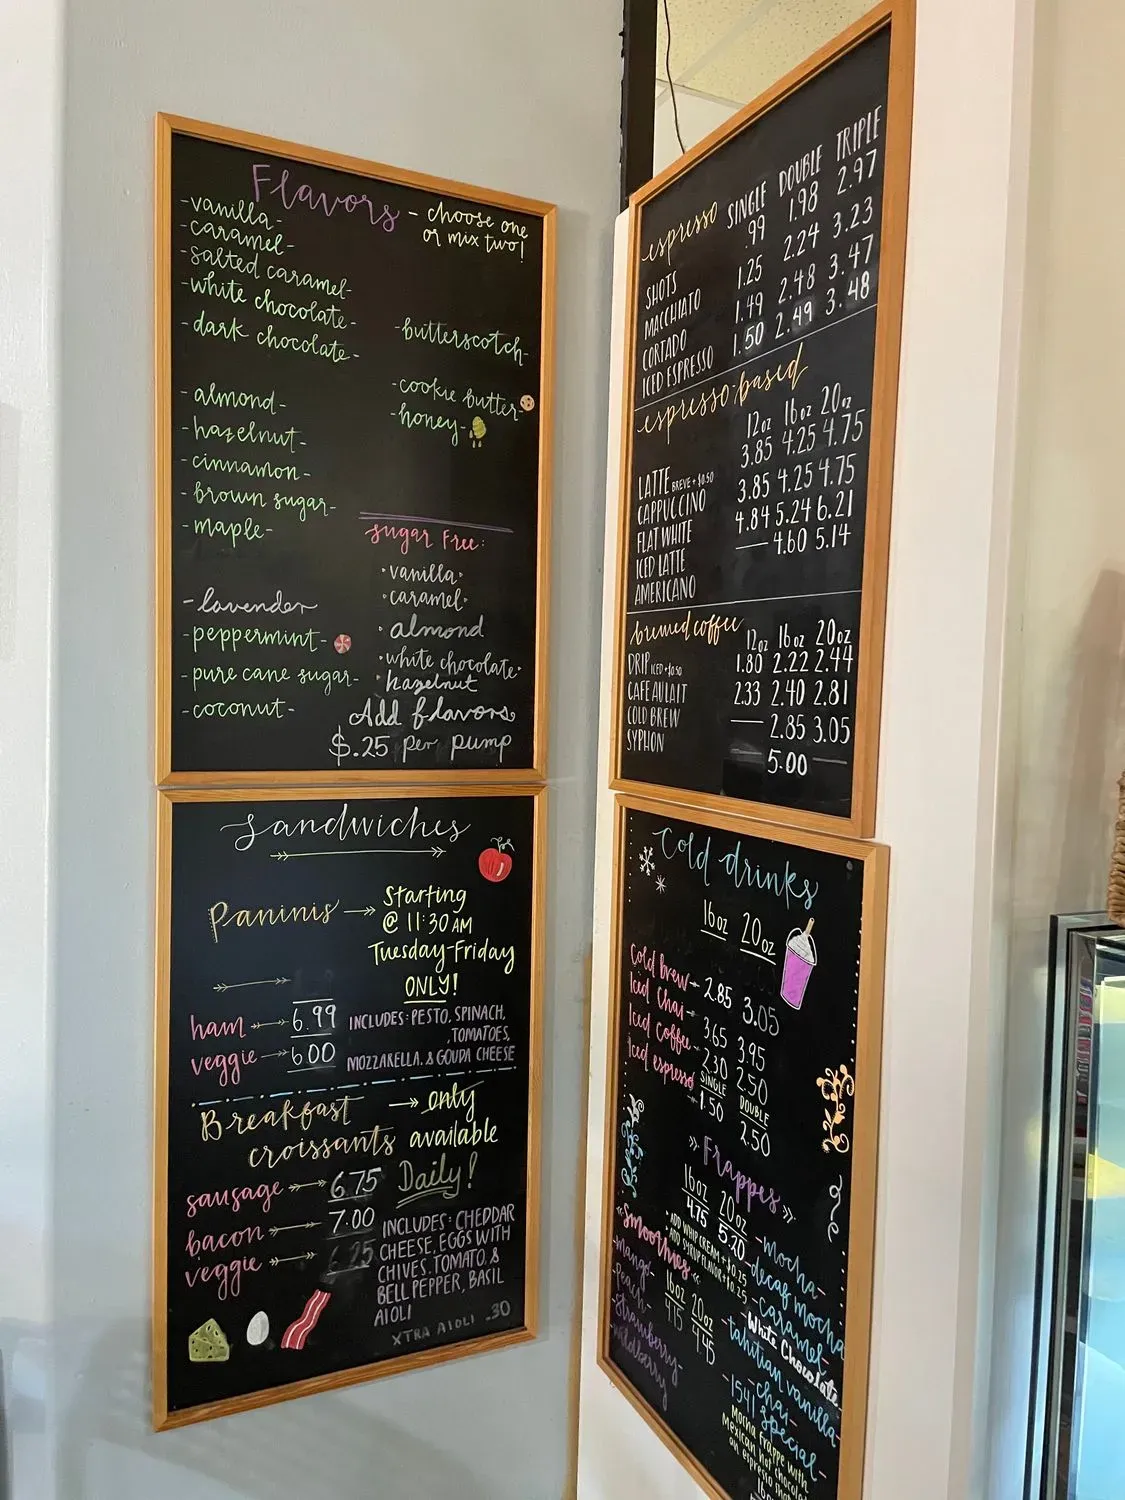 Flavors - choose one
or mix two!
-vanilla-
-caramel-
-salted caramel-
-white chocolate-
-dark chocolate-
-almond-
-hazelnut-
-cinnamon-
-brown sugar-
-maple-
-lavender
-peppermint-
-pure cane sugar-
-coconut-
-butterscotch-
-cookie butter-
-honey-
sugar free:
·vanilla·
·caramel·
·almond
·white chocolate·
·hazelnut
Add flavors
$.25 per pump
Sandwiches
Paninis → Starting
@ 11:30 AM
Tuesday-Friday
ONLY!
ham → 6.99
veggie → 6.00
INCLUDES: PESTO, SPINACH,
TOMATOES,
MOZZARELLA, & GOUDA CHEESE
Breakfast → only
croissants available
Daily!
sausage → 6.75
bacon → 7.00
veggie → 6.25
INCLUDES: CHEDDAR
CHEESE, EGGS WITH
CHIVES, TOMATO, &
BELL PEPPER, BASIL
AIOLI
XTRA AIOLI .30
espresso SINGLE DOUBLE TRIPLE
SHOTS .99 1.98 2.97
MACCHIATO 1.25 2.24 3.23
CORTADO 1.49 2.48 3.47
ICED ESPRESSO 1.50 2.49 3.48
espresso-based
12oz 16oz 20oz
LATTE BREVE + $0.50 3.85 4.25 4.75
CAPPUCCINO 3.85 4.25 4.75
FLAT WHITE 4.84 5.24 6.21
ICED LATTE — 4.60 5.14
AMERICANO
brewed coffee 12oz 16oz 20oz
DRIP ICED +$0.50 1.80 2.22 2.44
CAFE AU LAIT 2.33 2.40 2.81
COLD BREW — 2.85 3.05
SYPHON 5.00 —
Cold drinks
16oz 20oz
Cold brew → 2.85 3.05
Iced Chai → 3.65 3.95
Iced coffee → 2.30 2.50
Iced espresso SINGLE DOUBLE
→ 1.50 2.50
» Frappes »
16oz 20oz
4.75 5.20
·ADD WHIP CREAM + $0.25
·ADD SYRUP FLAVOR + $0.25
-mocha-
-decaf mocha
-caramel-
-White Chocolate-
-tahitian vanilla
-chai-
-1541 special-
Mocha frappe with
Mexican hot chocolate
an espresso shot
16oz
«Smoothies«
16oz 20oz
4.15 4.45
-mango-
-Peach-
-strawberry-
-wildberry